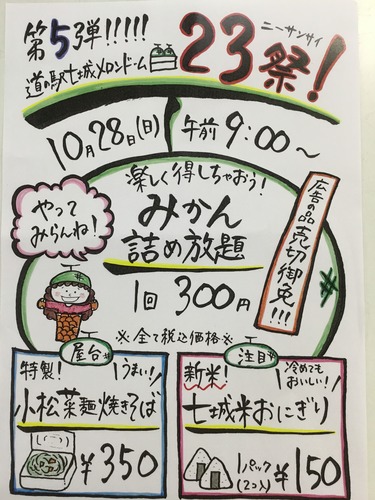 第5弾!!!!!
道の駅七城メロンドーム
ニーサンサイ
23祭!
10月28日(日) 午前9:00〜
楽しく得しちゃおう!
みかん
詰め放題
1回 300円
※全て税込価格※
やって
みらんね!
広告の品 売切御免!!!
屋台
特製! うまい!
小松菜麺焼きそば
¥350
注目
新米! 冷めても
おいしい!
七城米おにぎり
1パック
(2コ入)
¥150